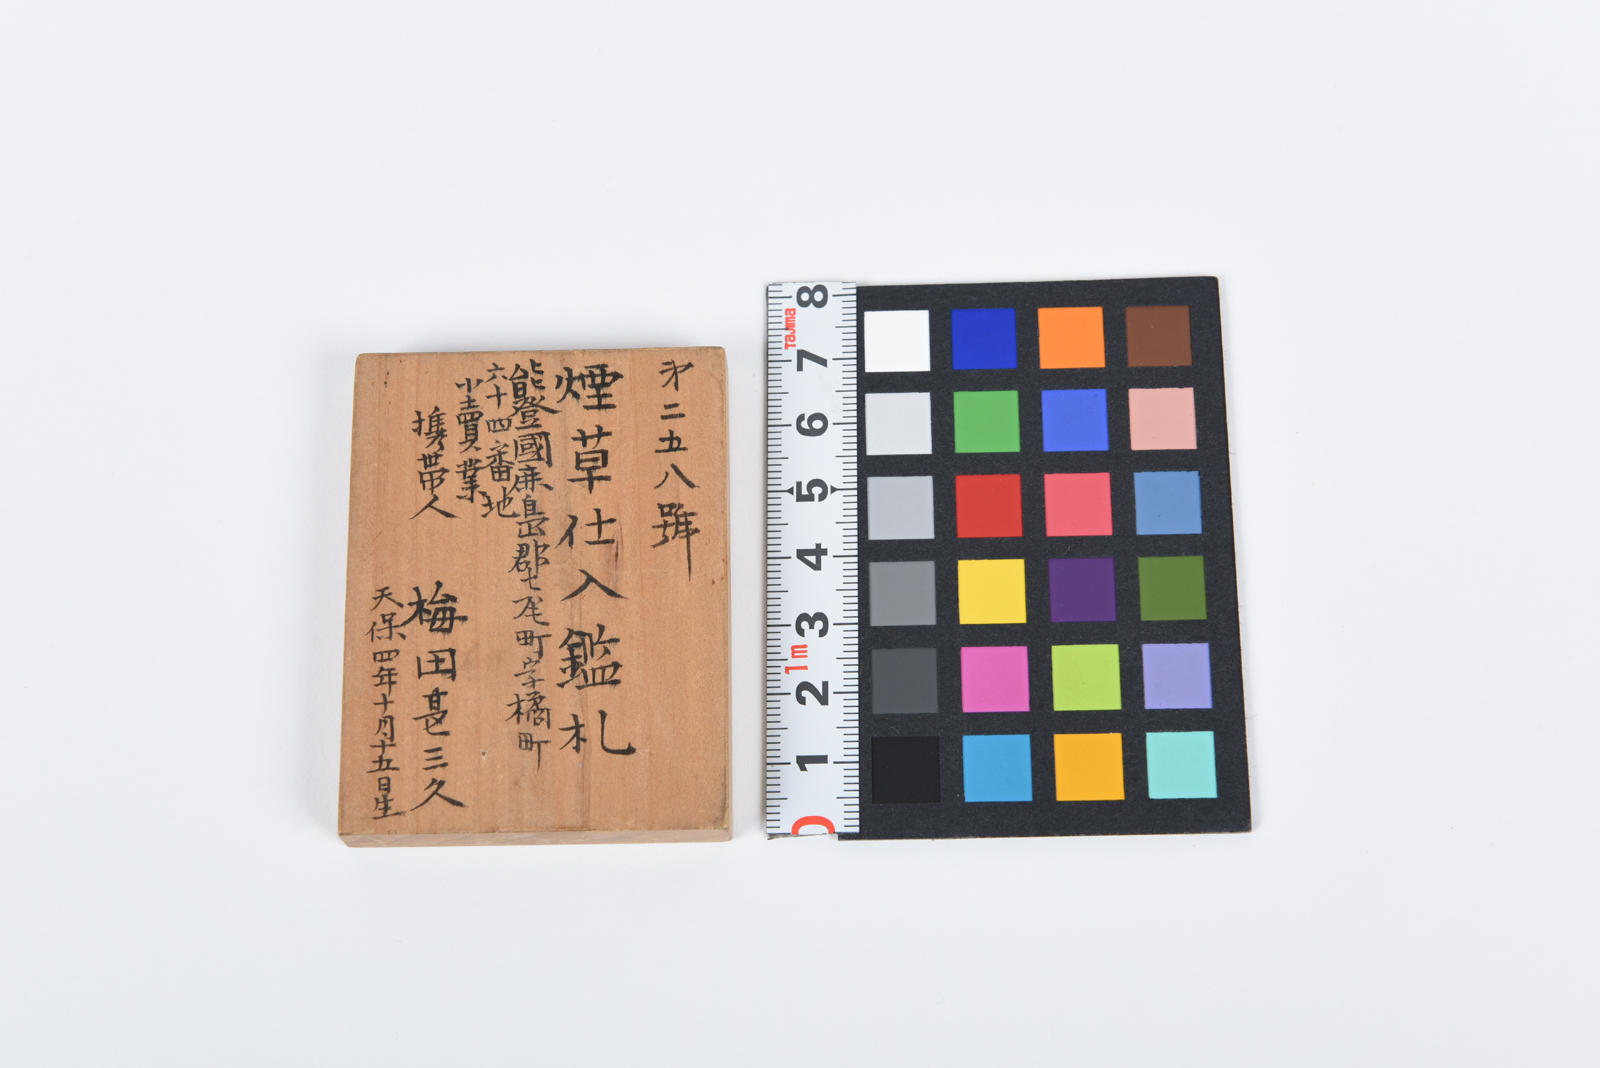 第二五八號
煙草仕入鑑札
能登國鹿島郡七尾町字橘町
六十四番地
小賣業
携帯人
梅田甚三久
天保四年十月十五日生
8
Tajima
7
6
5
4
3
1m
2
1
0